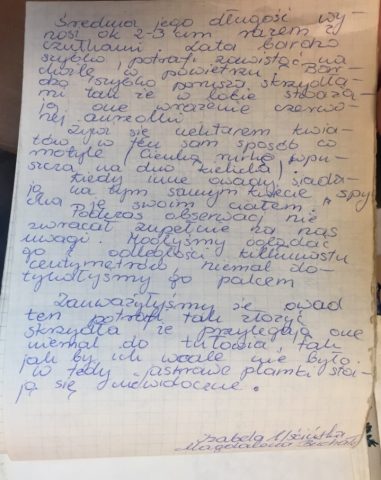 Średnio jego długość wy-
nosi ok 2-3 cm razem z
czułkami. Lata bardzo
szybko, potrafi zawisnąć na
chwilę w powietrzu. Bar-
dzo szybko porusza skrzydła-
mi tak że w locie stwarza-
ją one wrażenie czerwo-
nej aureolki.
Żywi się nektarem kwia-
tów w ten sam sposób co
motyle (cienką rurkę wpu-
szcza na dno kielicha).
Kiedy inne owady siada-
ją na tym samym kwiecie "spy-
cha" je swoim ciałem.
Podczas obserwacji nie
zwracał zupełnie na nas
uwagi. Mogłyśmy oglądać
go z odległości kilkunastu
centymetrów, niemal do-
tykałyśmy go palcem
Zauważyłyśmy że owad
ten potrafi tak złożyć
skrzydła że przylegają one
niemal do tułowia tak
jak by ich wcale nie było.
W tedy jaskrawe plamki sta-
ją się niewidoczne.
Izabela
Magdalena